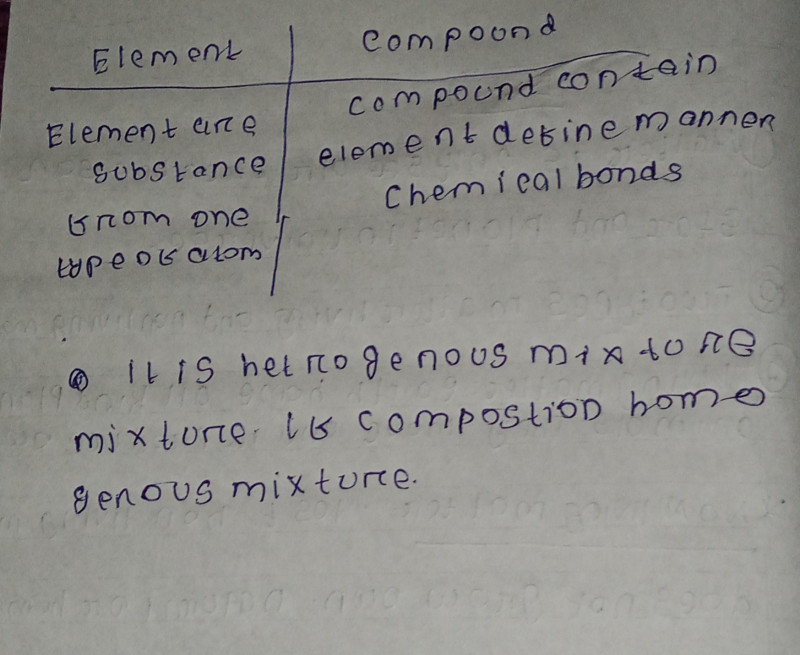 Element
Compound
Element are
substance
from one
type of atom
compound contain
element define manner
Chemical bonds
It is hetrogenous mixture
mixture. If compostion homo
genous mixture.